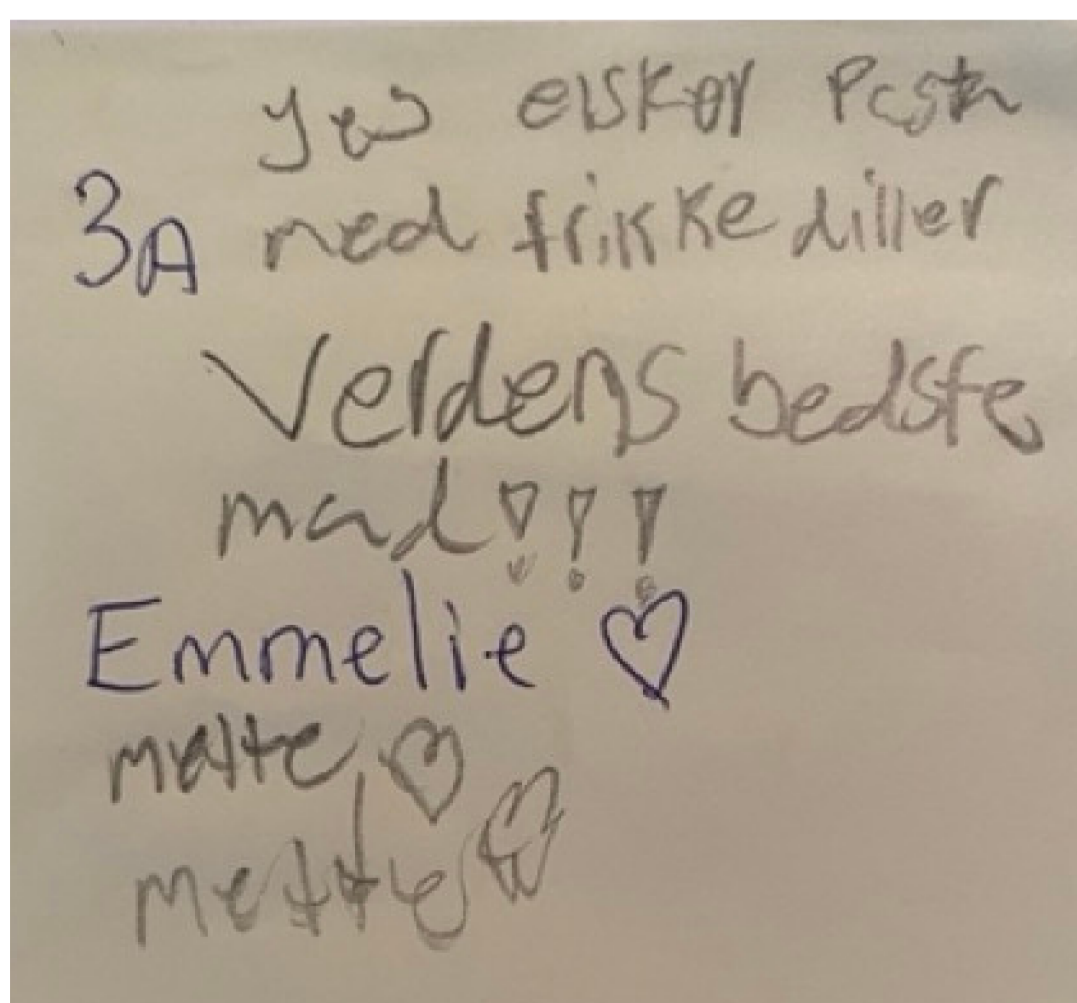 yes elsker Pasta
3A med frikke diller
Verdens bedste
mad!!!
Emmelie ♡
malte ♡
mette ♡